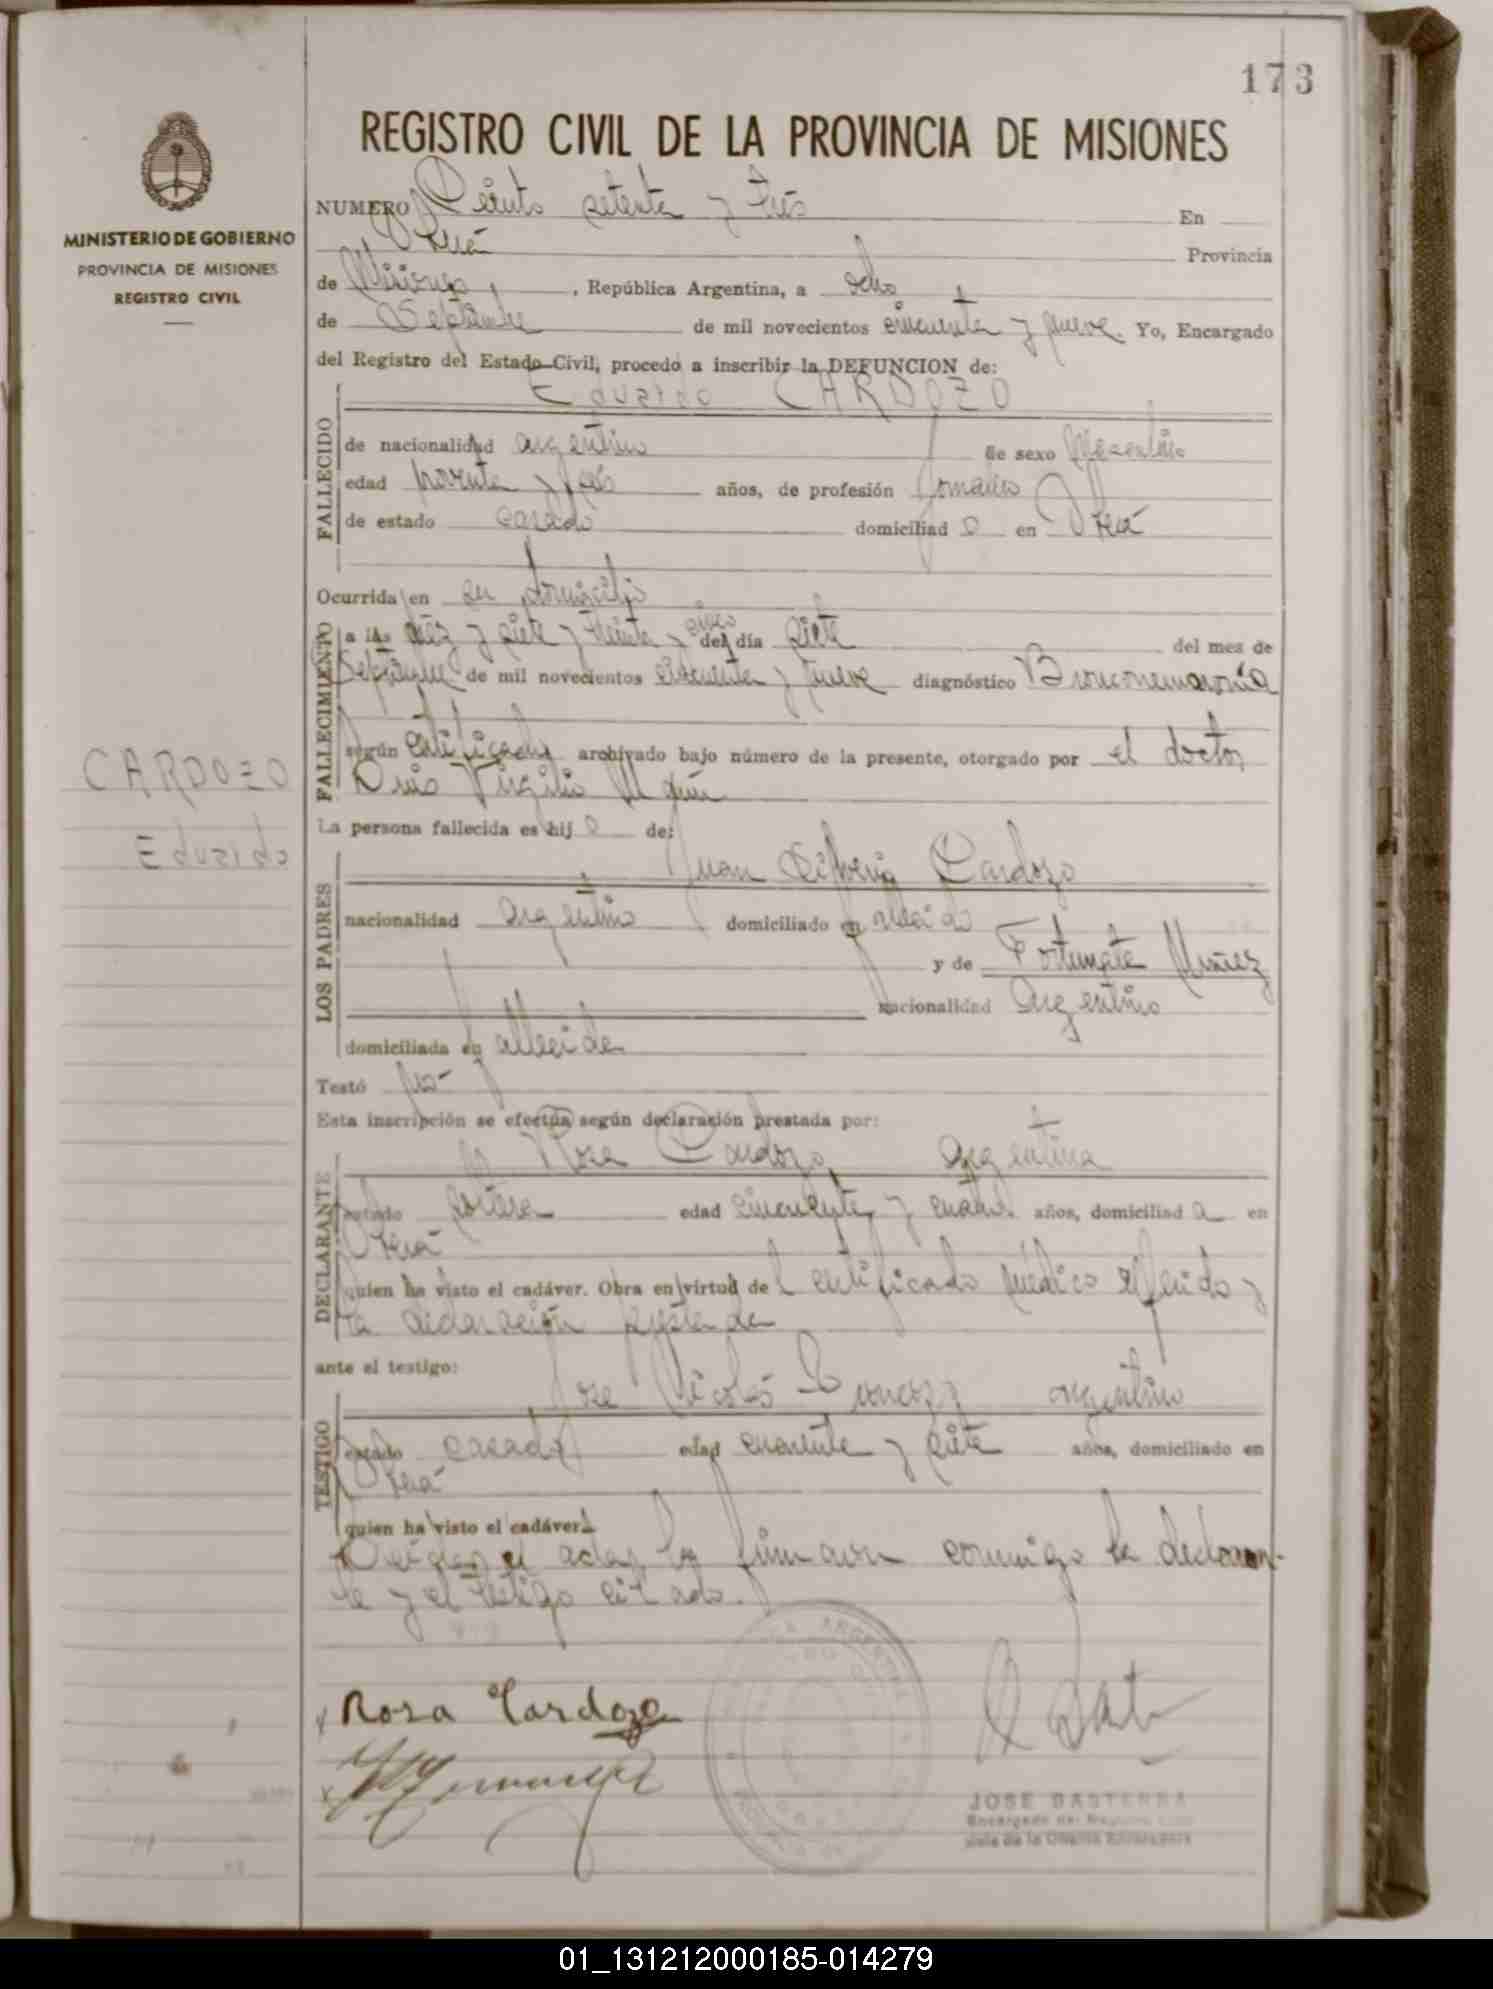 173
REGISTRO CIVIL DE LA PROVINCIA DE MISIONES
MINISTERIO DE GOBIERNO
PROVINCIA DE MISIONES
REGISTRO CIVIL
NUMERO Ciento setenta y tres En
Oberá Provincia
de Misiones, República Argentina, a ocho
de Septiembre de mil novecientos cincuenta y nueve. Yo, Encargado
del Registro del Estado Civil, procedo a inscribir la DEFUNCION de:
Eduardo CARDOZO
FALLECIDO
de nacionalidad argentino de sexo Masculino
edad noventa y tres años, de profesión Jornalero
de estado casado domiciliad o en Oberá
Ocurrida en su domicilio
FALLECIMIENTO
a las diez y siete y treinta y cinco del día siete del mes de
Septiembre de mil novecientos cincuenta y nueve diagnóstico Bronconeumonía
según certificado archivado bajo número de la presente, otorgado por el doctor
Luis Virgilio
CARDOZO
Eduardo
La persona fallecida es hij o de:
LOS PADRES
Juan Cardozo
nacionalidad argentino domiciliado en fallecido
y de Fortunata Nuñez
nacionalidad argentino
domiciliada en fallecida
Testó no
Esta inscripción se efectúa según declaración prestada por:
DECLARANTE
Rosa Cardozo, argentina
estado soltera edad cincuenta y cuatro años, domiciliad a en
Oberá
quien ha visto el cadáver. Obra en virtud del certificado médico referido y
la declaración prestada
ante el testigo:
TESTIGO
José Nicolás argentino
estado casado edad cuarenta y siete años, domiciliado en
Oberá
quien ha visto el cadáver.
Leída el acta, la firmaron conmigo la declaran-
te y el testigo citado.
Rosa Cardozo
JOSE BASTERRA
Encargado del Registro Civil
01_131212000185-014279